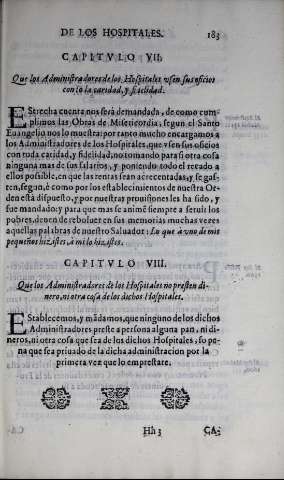 DE LOS HOSPITALES. 183
CAPITVLO VII.
Que los Administradores de los Hospitales vsen sus oficios
con toda caridad, y fidelidad.
EStrecha cuenta nos será demandada, de como cum-
plimos las Obras de Misericordia, segun el Santo
Euangelio nos lo muestra: por tanto mucho encargamos a
los Administradores de los Hospitales, que vsen sus oficios
con toda caridad, y fidelidad, no tomando para si otra cosa
ninguna mas de sus salarios, y poniendo todo el recado a
ellos possible, en que las rentas sean acrecentadas, y se gas-
ten, segun, è como por los establecimientos de nuestra Or-
den està dispuesto, y por nuestras prouisiones les ha sido, y
fue mandado: y para que mas se anime siempre a seruir los
pobres, deuen de reboluer en sus memorias muchas vezes
aquellas palabras de nuestro Saluador: Lo que à vno de mis
pequeños hizistes, à mi lo hizistes.
CAPITVLO VIII.
Que los Administradores de los Hospitales no presten di-
nero, ni otra cosa de los dichos Hospitales.
EStablecemos, y mãdamos, que ninguno de los dichos
Administradores preste a persona alguna pan, ni di-
neros, ni otra cosa que sea de los dichos Hospitales, so pe-
na que sea priuado de la dicha administracion por la
primera vez que lo emprestare.
Hh 3 CA-